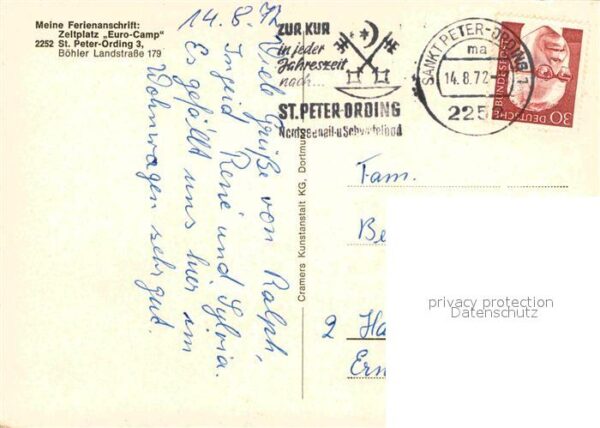 Meine Ferienanschrift:
Zeltplatz „Euro-Camp"
2252 St. Peter-Ording 3,
Böhler Landstraße 179
14.8.72
Viele Grüße von Ralph,
Ingrid René und Sylvia.
Es gefällt uns hier im
Wohnwagen sehr gut.
ZUR KUR
in jeder
Jahreszeit
nach...
ST. PETER-ORDING
Nordseeheil-u Schwefelbad
SANKT PETER-ORDING 1
ma
14.8.72
225
DEUTSCHE BUNDESPOST
30
Cramers Kunstanstalt KG, Dortmund
Fam.
Be
2 Ha
Ern
privacy protection
Datenschutz